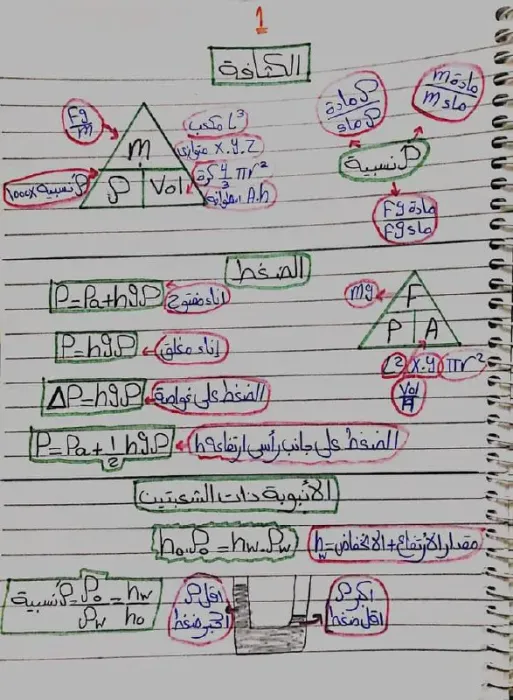 1
الكثافة
Fg/m
m
ρ
Vol
ρ نسبية x1000
مكعب L³
متوازي x.y.z
كرة 4/3 πr³
اسطوانة A.h
ρ مادة/ρ ماء
m مادة/m ماء
ρ نسبية
Fg مادة/Fg ماء
الضغط
P=Pa+hgρ
إناء مفتوح
P=hgρ
إناء مغلق
ΔP=hgρ
الضغط على غواصة
P=Pa+1/2 hgρ
الضغط على جانب رأسي ارتفاعه h
mg
F
P
A
L²
x.y
πr²
Vol/H
الأنبوبة ذات الشعبتين
ho.ρo = hw.ρw
hw = مقدار الارتفاع + الانخفاض
ρ نسبية = ρo/ρw = hw/ho
اقل ρ
اكبر ضغط
اكبر ρ
اقل ضغط